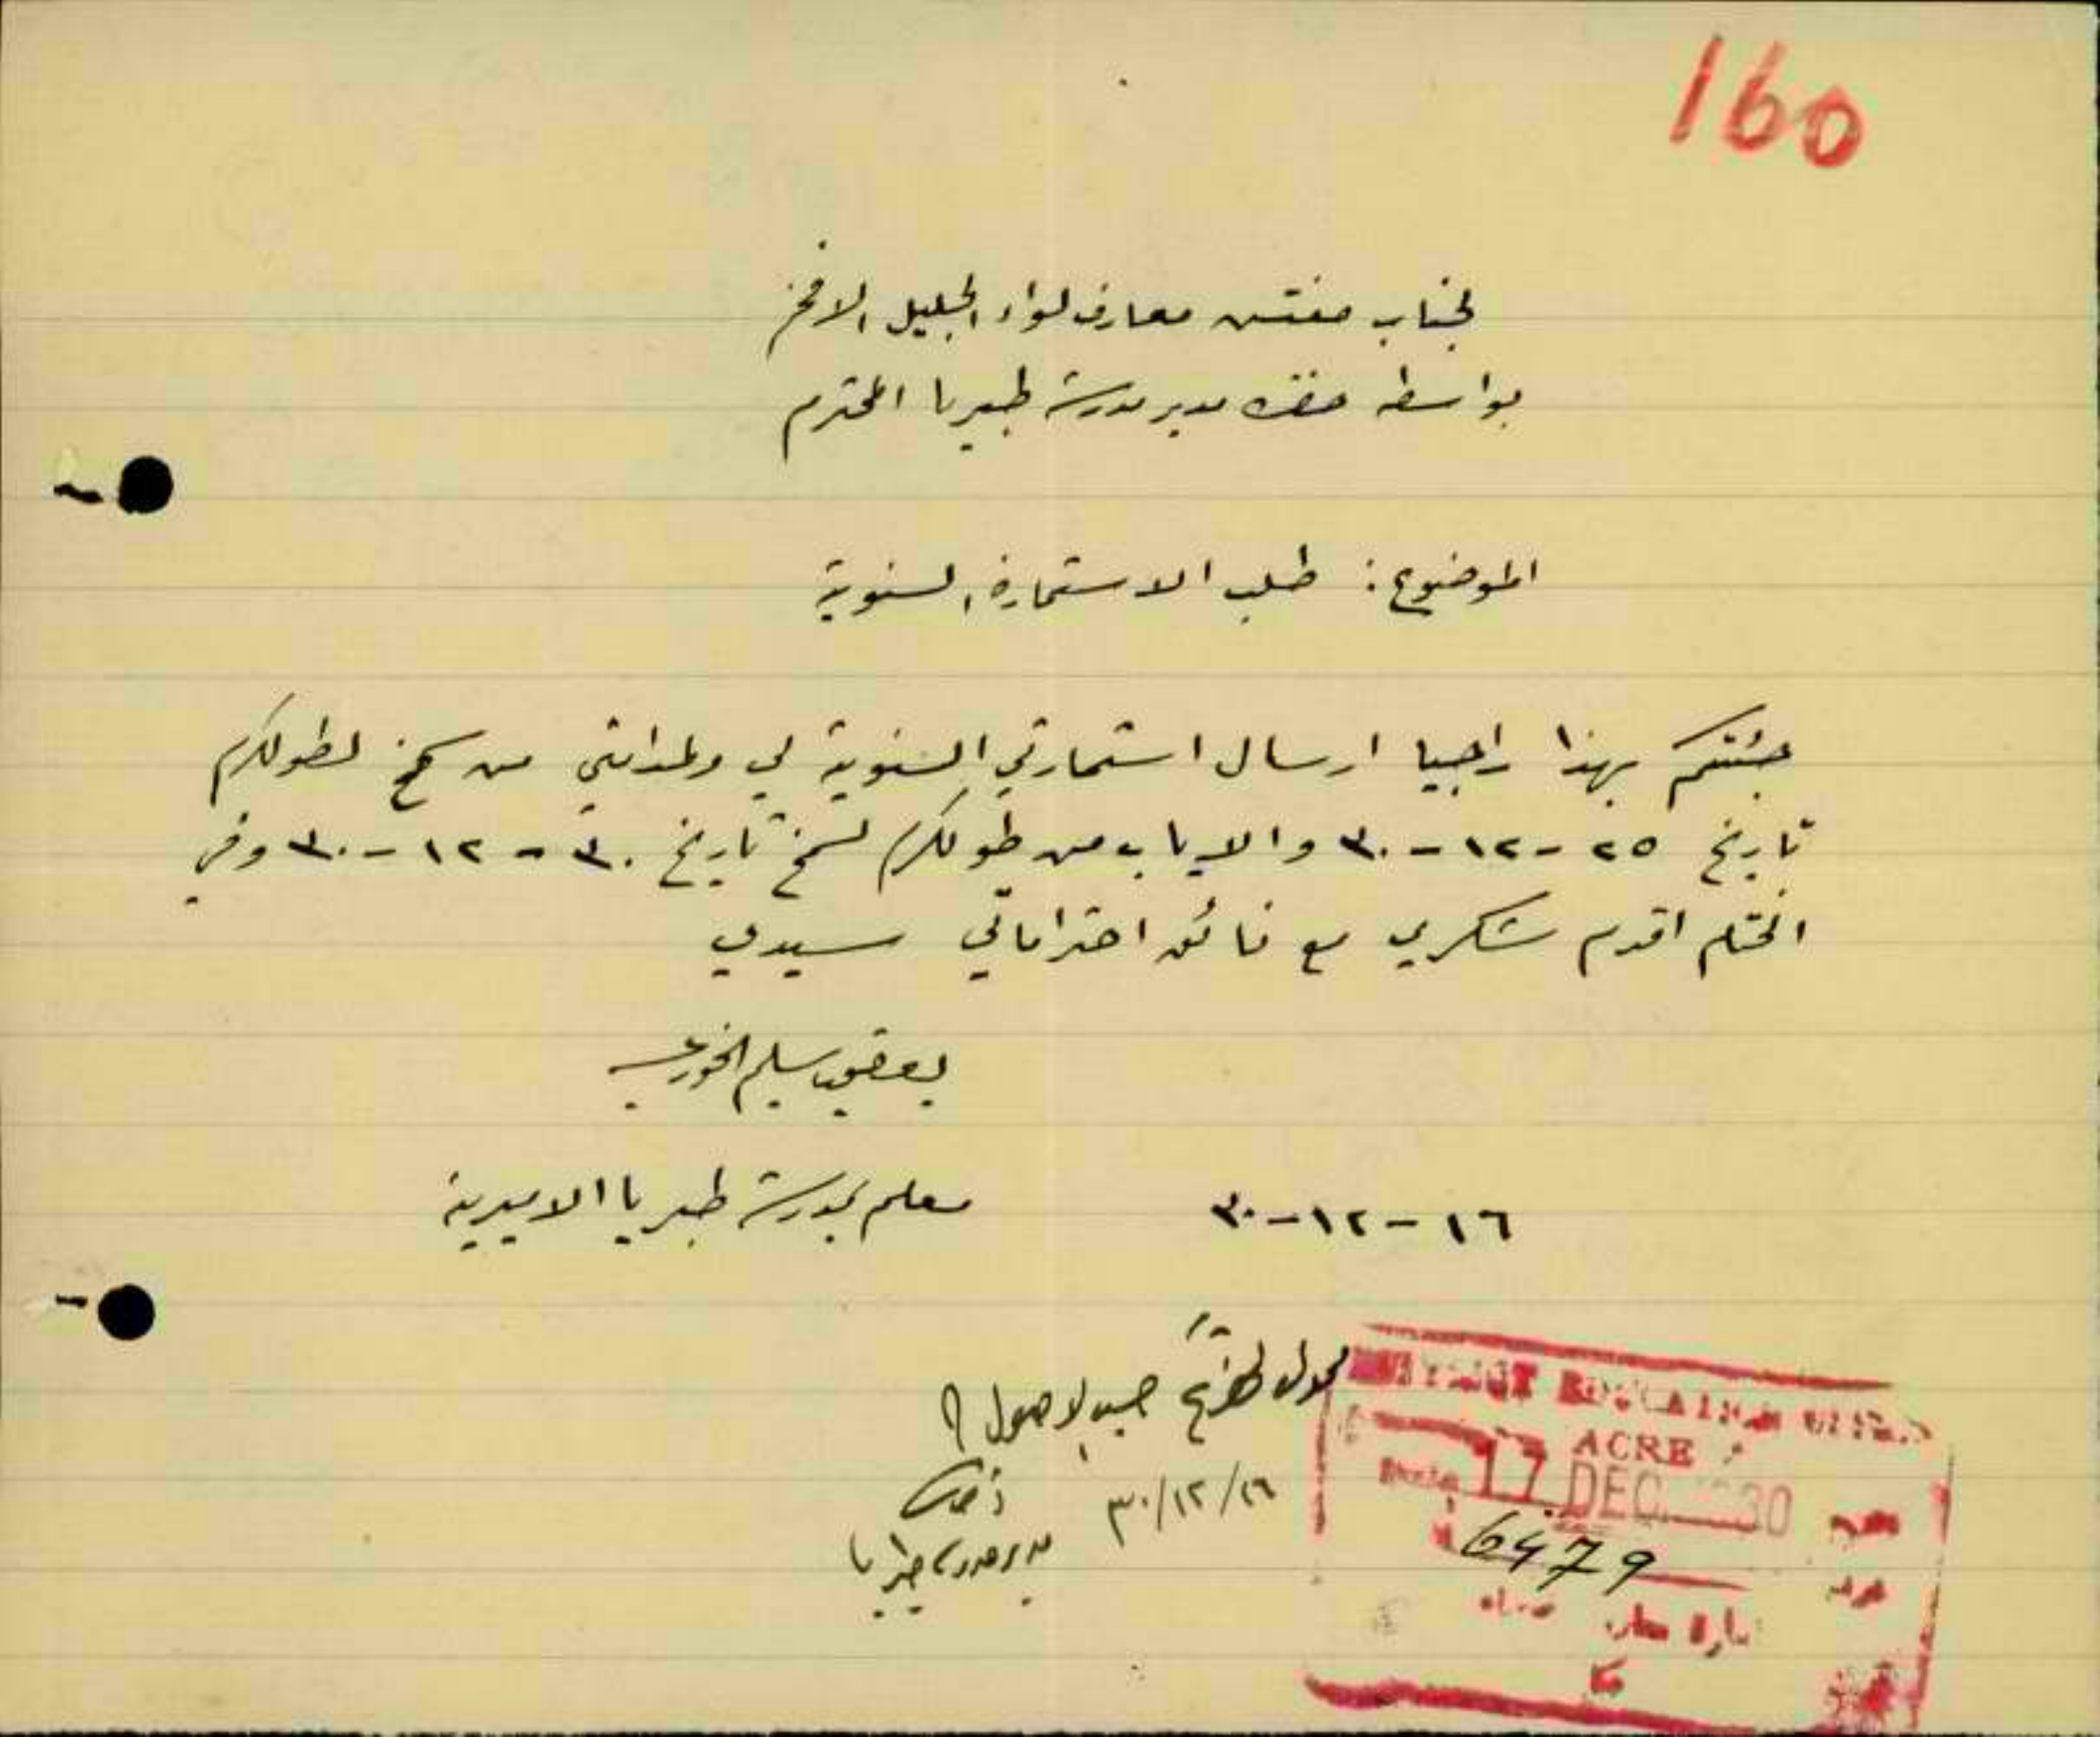 160
لجناب مفتش معارف لواء الجليل الافخم
بواسطة حضرة مدير مدرسة طبريا المحترم
الموضوع: طلب الاستمارة السنوية
جئتكم بهذا راجيا ارسال استمارتي السنوية لي ولعائلتي من سمخ لطولكرم
تاريخ ٢٥-١٢-٣٠ والاياب من طولكرم لسمخ تاريخ ٣٠-١٢-٣٠ وفي
الختام اقدم شكري مع فائق احتراماتي سيدي
يعقوب سليم الخوري
معلم بمدرسة طبريا الاميرية
١٦-١٢-٣٠
محول حسب الاصول
١٦/١٢/٣٠
مدير مدرسة طبريا
ACRE
Date 17 DEC 30
6479
عكا